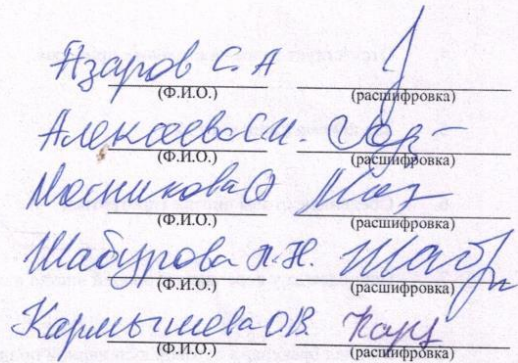 Азаров С. А
(Ф.И.О.) (расшифровка)
Алексеева С.И.
(Ф.И.О.) (расшифровка)
Мосникова О
(Ф.И.О.) (расшифровка)
Шабурова Л.Н. Шабу
(Ф.И.О.) (расшифровка)
Кармышева О.В. Карм
(Ф.И.О.) (расшифровка)